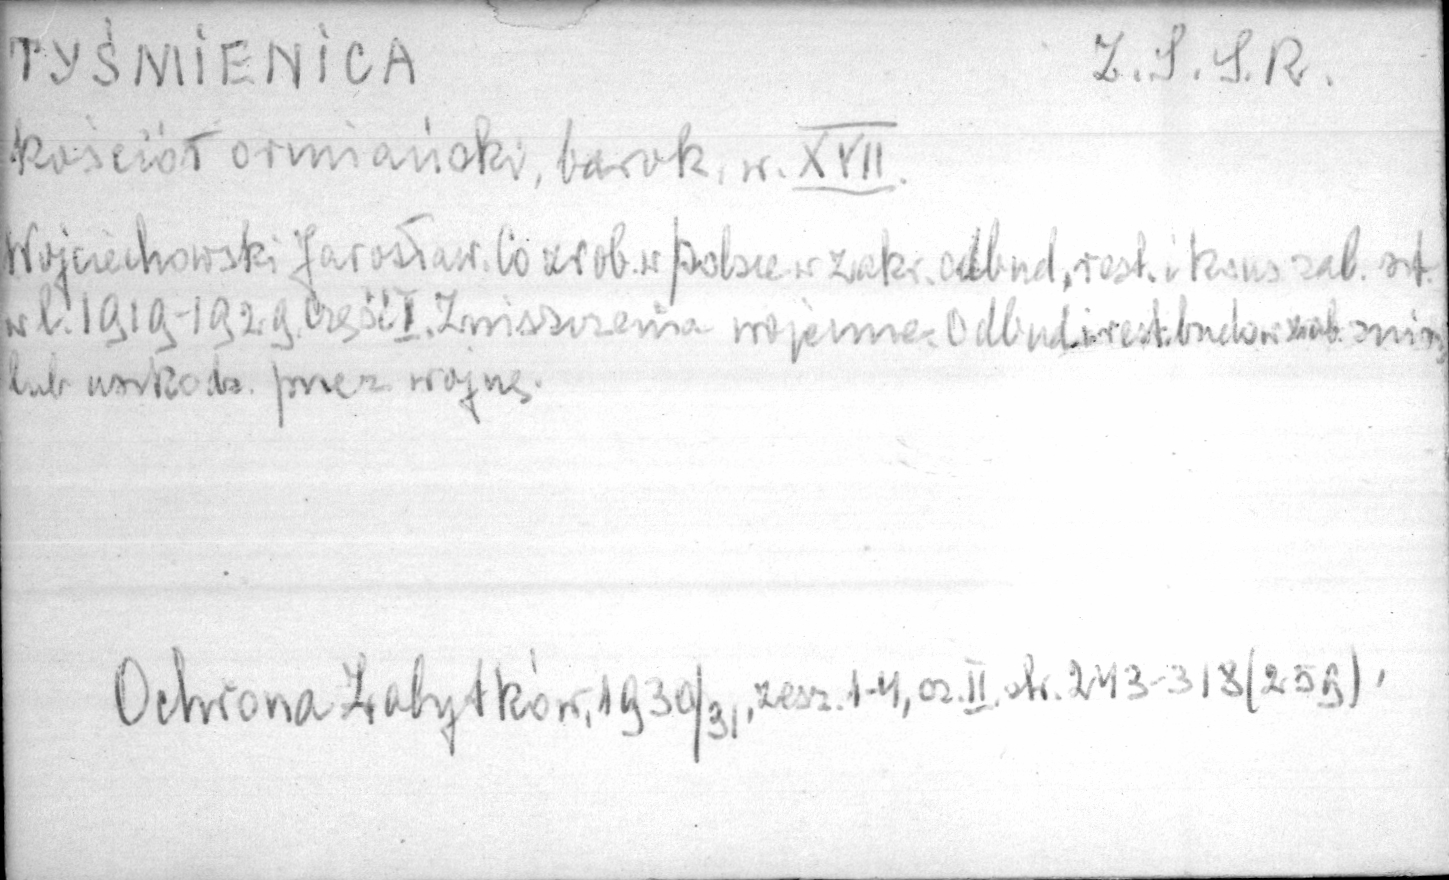 TYŚMIENICA Z.S.S.R.
Kościół ormiański, barok, w. XVII.
Wojciechowski Jarosław. Co zrob. w Polsce w zakr. odbud., rest. i kons. zab. szt.
w l. 1919-1929. Część I. Zniszczenia wojenne. Odbud. i rest. budow. zab. zniszcz.
lub uszkodz. przez wojnę.
Ochrona Zabytków, 1930/31, zesz. 1-4, cz. II, str. 243-318 (259),